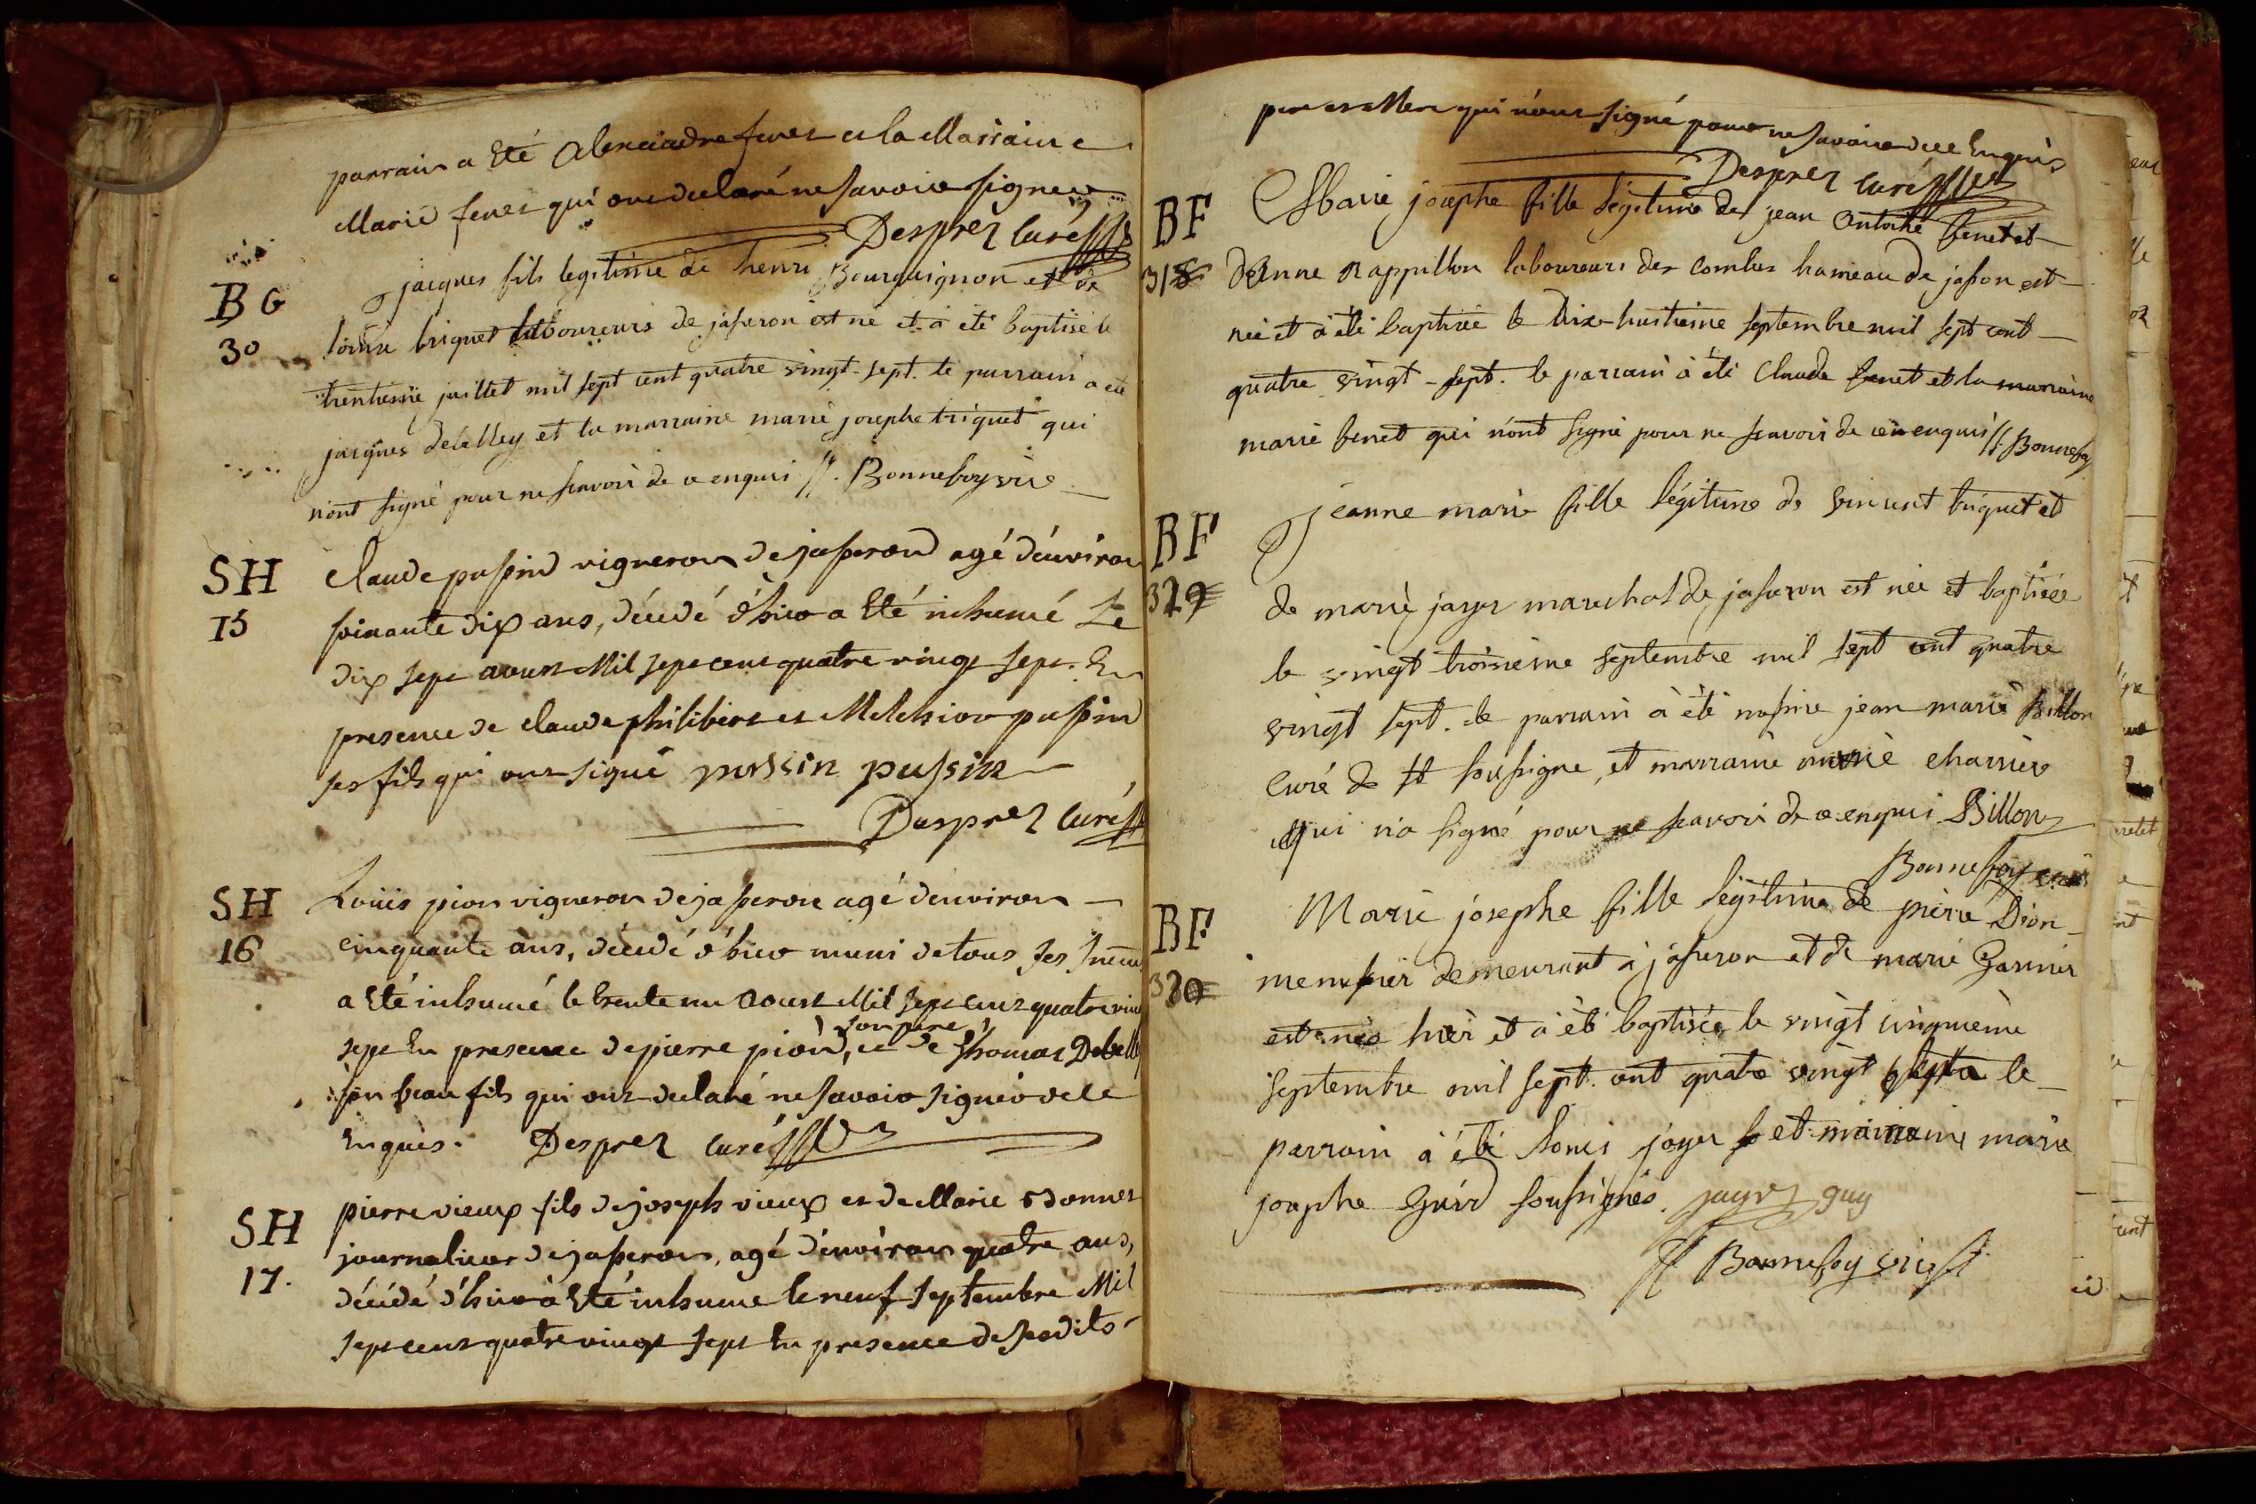 parrain a Eté Alexandre fenet et la Marraine
Marie fenet qui ont declaré ne Savoir Signer
Desprez Curé
BG
30
jacques fils legitime de henri Bourguignon et de
triquet laboureurs de jasseron est né et à été baptisé le
trentieme juillet mil sept cent quatre vingt-sept. le parrain a été
jacques debelley et la marraine marie josephe triquet qui
n'ont signé pour ne scavoir de ce enquis //. Bonnefoy vic
SH
15
Claude pussin vigneron de jasseron agé d'environ
soixante dix ans, décédé d'hier a Eté inhumé Le
dix sept aoust Mil sept cent quatre vingt sept. En
presence de Claude philibert et Melchior pussin
ses fils qui ont signé pussin pussin
Desprez Curé
SH
16
Louis pion vigneron de jasseron agé d'environ
cinquante ans, décédé d'hier muni de tous ses
a Eté inhumé le trente un Aoust Mil sept cent quatre vint
sept En presence de pierre pion, son pere, et de thomas Debelley
son beau fils qui ont declaré ne Savoir signer de ce
Enquis. Desprez Curé
SH
17.
pierre vieux fils de joseph vieux et de Marie Donnet
journalier de jasseron, agé d'environ quatre ans,
décédé d'hier à Eté inhumé le neuf septembre Mil
sept cent quatre vingt sept En presence de sesdits
pere et Mere qui n'ont signé pour ne Savoir de ce Enquis
Desprez Curé
BF
318
Marie josephe fille légitime de jean Antoine fenet et
d'Anne Rappillon laboureurs des Combes hameau de jasseron est
née et à été baptisée le dix-huitieme septembre mil sept cent
quatre vingt-sept. le parrain à été Claude fenet et la marraine
marie fenet qui n'ont signé pour ne scavoir de ce enquis // Bonnefoy
BF
329
Jeanne marie fille légitime de vincent triquet et
de marie jayr marechal de jasseron est née et baptisée
le vingt troisieme septembre mil sept cent quatre
vingt sept. le parrain à été messire jean marie Billon
Curé de soussigné, et marraine marie charriere
qui n'a signé pour ne scavoir de ce enquis Billon
Bonnefoy vic
BF
320
Marie josephe fille légitime de pierre Dion
menusier demeurant à jasseron et de marie Garnier
est née hier et à été baptisée le vingt cinquieme
septembre mil sept cent quatre vingt sept le
parrain à été Louis jayr et marraine marie
josephe Guid soussignés. jayr guy
Bonnefoy vic